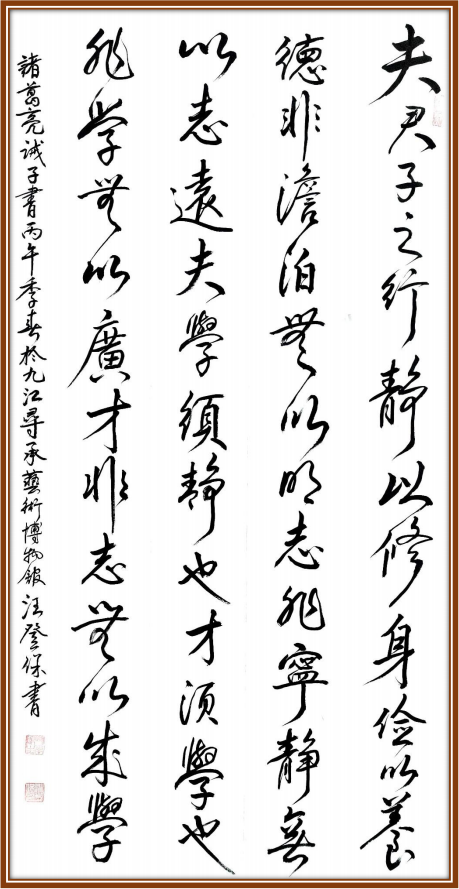 夫君子之行靜以修身儉以養
德非澹泊無以明志非寧靜無
以志遠夫學須靜也才須學也
非學無以廣才非志無以成學
諸葛亮誡子書丙午季春於九江尋承藝術博物館汪登保書